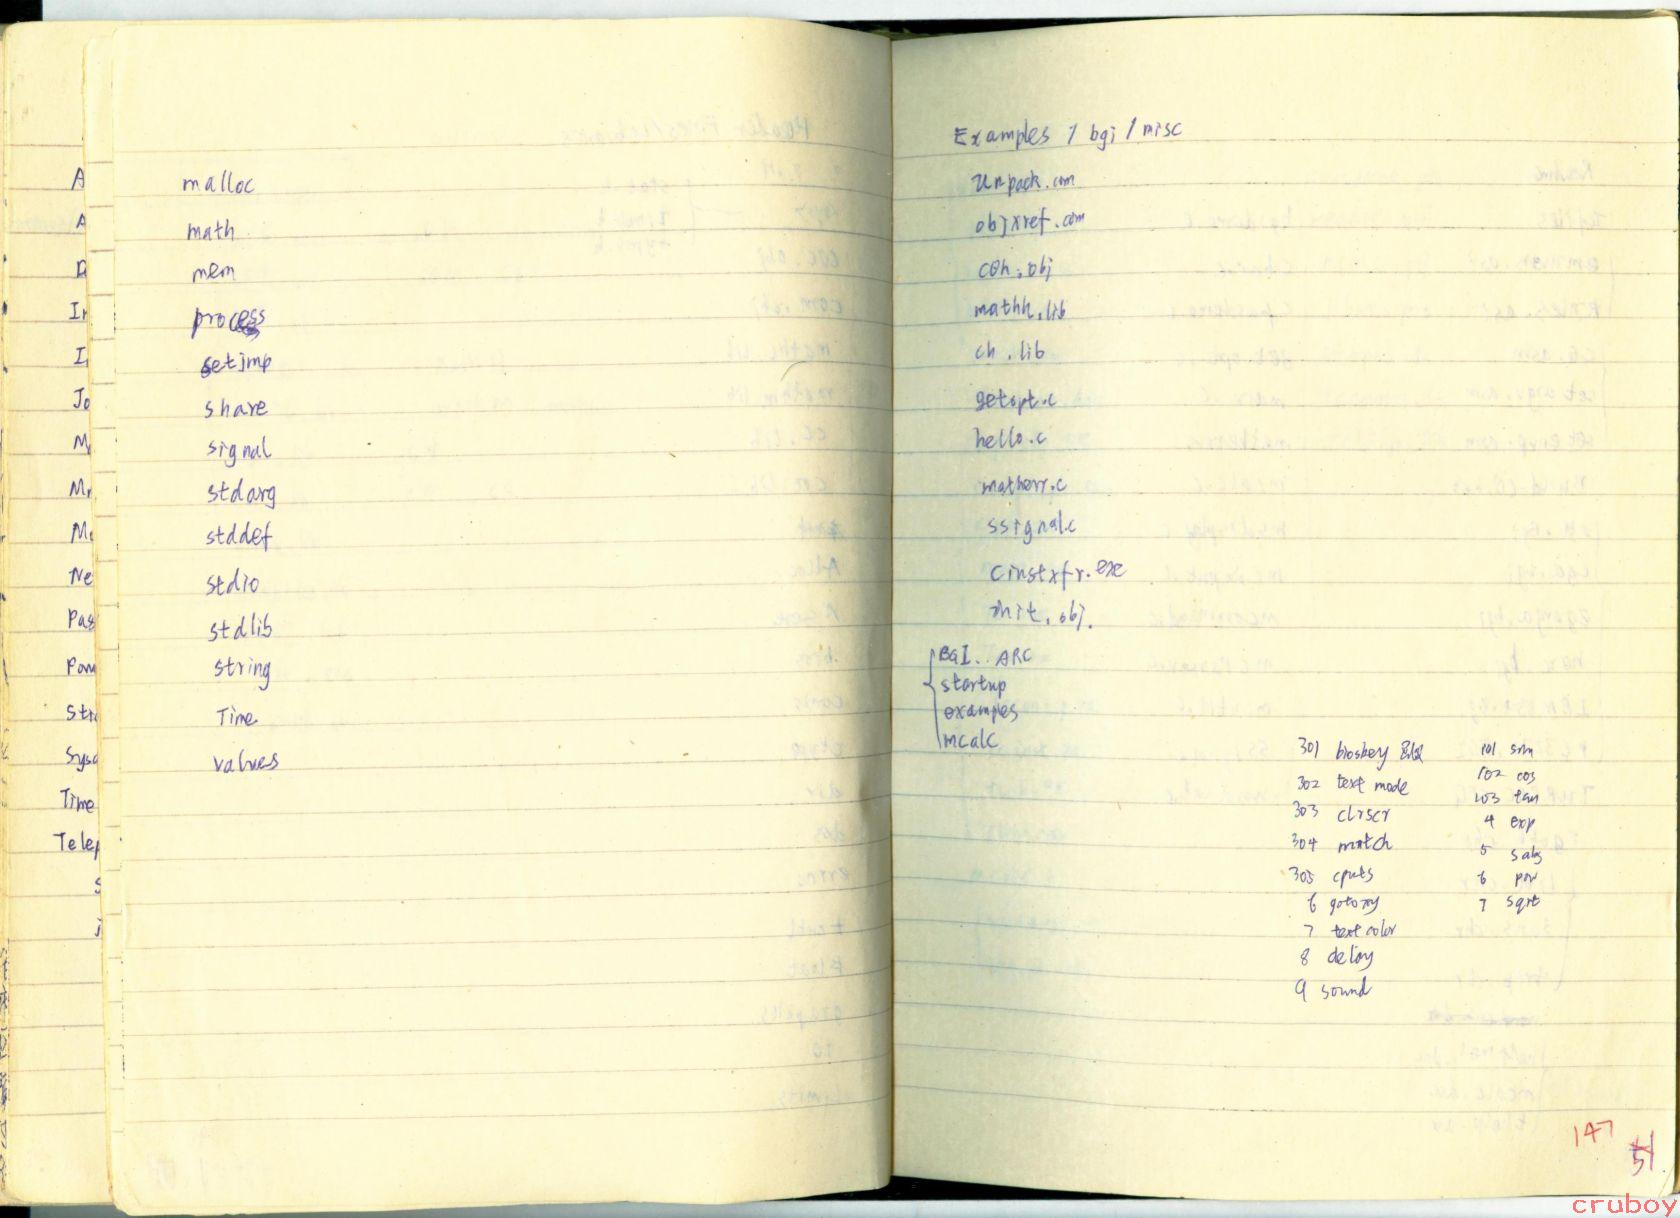 A
A
D
In
I
Jo
M
Mr
M
Ne
Pas
Pow
Str
Sys
Time
Telep
S
malloc
math
mem
process
setjmp
share
signal
stdarg
stddef
stdio
stdlib
string
Time
values
Examples / bgi / misc
Unpack.com
objxref.com
c0h.obj
mathh.lib
ch.lib
getopt.c
hello.c
matherr.c
ssignal.c
cinstxfr.exe
init.obj.
BGI..ARC
startup
examples
mcalc
301 bioskey
302 text mode
303 clrscr
304
305 cputs
6 gotoxy
7 text color
8 delay
9 sound
101 sin
102 cos
103 tan
4 exp
5
6 pow
7 sqrt
147
51
cruboy